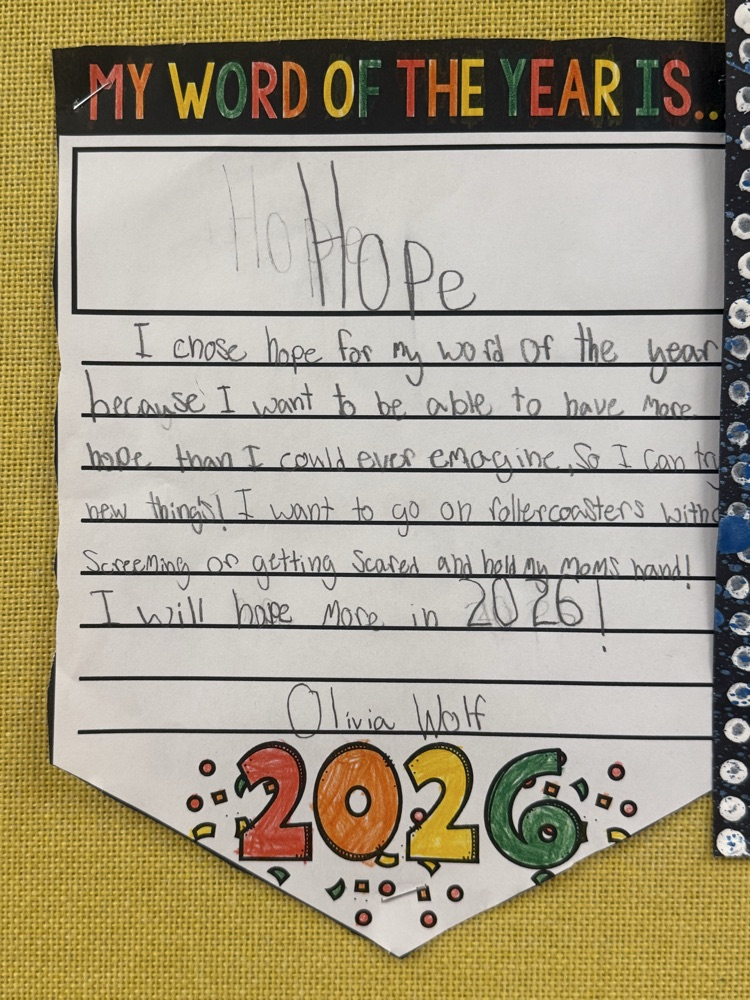 MY WORD OF THE YEAR IS...
Hope
I chose hope for my word of the year
because I want to be able to have more
hope than I could ever emagine, So I can try
new things! I want to go on rollercoasters
Screeming or getting Scared and hold my moms hand!
I will hope more in 2026!
Olivia Wolf
2026